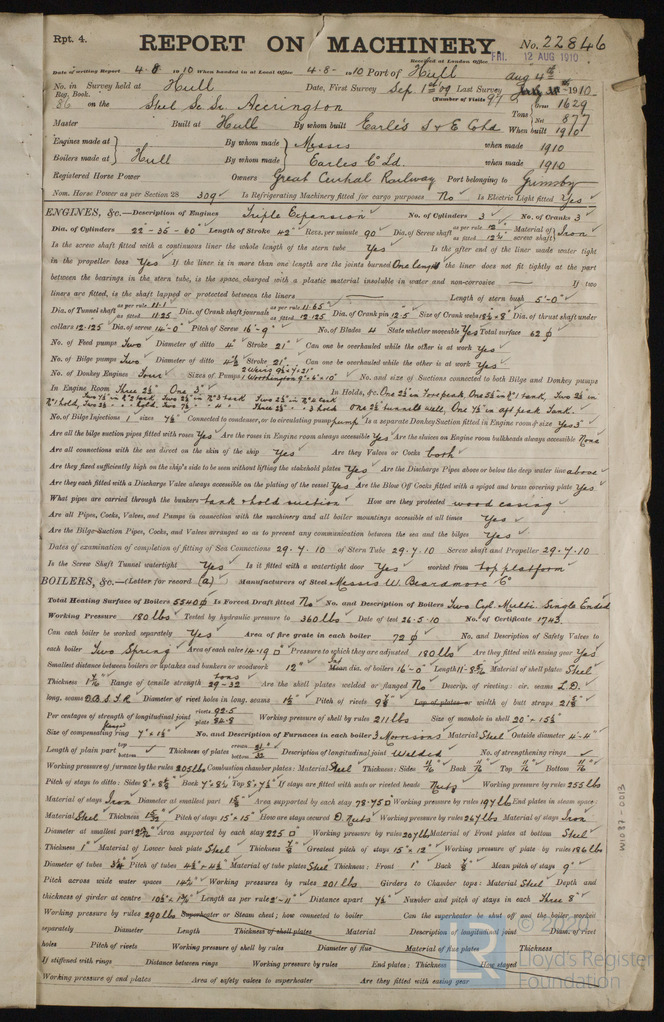 Rpt. 4.
REPORT ON MACHINERY.
No. 22846
Received at London Office FRI. 12 AUG 1910
Date of writing Report 4-8- 1910 When handed in at Local Office 4-8- 1910 Port of Hull
No. in Survey held at Hull Date, First Survey Sep 1st 09 Last Survey Aug 4th 1910
Reg. Book. (Number of Visits 97
86 on the Steel Sc. Sr. Accrington Tons Gross 1629 Net 877
Master Built at Hull By whom built Earle's S & E Co Ld When built 1910
Engines made at By whom made Messrs when made 1910
Boilers made at Hull By whom made Earles Co Ld. when made 1910
Registered Horse Power Owners Great Central Railway Port belonging to Grimsby
Nom. Horse Power as per Section 28 309 Is Refrigerating Machinery fitted for cargo purposes No Is Electric Light fitted Yes
ENGINES, &c.—Description of Engines Triple Expansion No. of Cylinders 3 No. of Cranks 3
Dia. of Cylinders 22-35-60 Length of Stroke 42" Revs. per minute 90 Dia. of Screw shaft as per rule 12 as fitted 12¼ Material of screw shaft Iron
Is the screw shaft fitted with a continuous liner the whole length of the stern tube Yes Is the after end of the liner made water tight
in the propeller boss Yes If the liner is in more than one length are the joints burned One length If the liner does not fit tightly at the part
between the bearings in the stern tube, is the space charged with a plastic material insoluble in water and non-corrosive If two
liners are fitted, is the shaft lapped or protected between the liners Length of stern bush 5'-0"
Dia. of Tunnel shaft as per rule 11.1 as fitted 11.25 Dia. of Crank shaft journals as per rule 11.65 as fitted 12.125 Dia. of Crank pin 12.5 Size of Crank webs Dia. of thrust shaft under
collars 12.125 Dia. of screw 14-0" Pitch of Screw 16'-9" No. of Blades 4 State whether moveable Yes Total surface 62
No. of Feed pumps Two Diameter of ditto 4" Stroke 21" Can one be overhauled while the other is at work Yes
No. of Bilge pumps Two Diameter of ditto 4½ Stroke 21" Can one be overhauled while the other is at work Yes
No. of Donkey Engines Four Sizes of Pumps No. and size of Suctions connected to both Bilge and Donkey pumps
In Engine Room Three 2½" One 3" In Holds, &c. One 2½ in Forepeak, One
No. of Bilge Injections 1 sizes 7½" Connected to condenser, or to circulating pump pump Is a separate Donkey Suction fitted in Engine room & size Yes 3"
Are all the bilge suction pipes fitted with roses Yes Are the roses in Engine room always accessible Yes Are the sluices on Engine room bulkheads always accessible None
Are all connections with the sea direct on the skin of the ship Yes Are they Valves or Cocks both
Are they fixed sufficiently high on the ship's side to be seen without lifting the stokehold plates Yes Are the Discharge Pipes above or below the deep water line above
Are they each fitted with a Discharge Valve always accessible on the plating of the vessel Yes Are the Blow Off Cocks fitted with a spigot and brass covering plate Yes
What pipes are carried through the bunkers tank & hold suction How are they protected wood casing
Are all Pipes, Cocks, Valves, and Pumps in connection with the machinery and all boiler mountings accessible at all times Yes
Are the Bilge Suction Pipes, Cocks, and Valves arranged so as to prevent any communication between the sea and the bilges Yes
Dates of examination of completion of fitting of Sea Connections 29.7.10 of Stern Tube 29.7.10 Screw shaft and Propeller 29.7.10
Is the Screw Shaft Tunnel watertight Yes Is it fitted with a watertight door Yes worked from top platform
BOILERS, &c.—(Letter for record (a)) Manufacturers of Steel Messrs W. Beardmore Co
Total Heating Surface of Boilers 5540 Is Forced Draft fitted No No. and Description of Boilers Two Cyl. Multi Single Ended
Working Pressure 180 lbs Tested by hydraulic pressure to 360 lbs Date of test 26.5.10 No. of Certificate 1743
Can each boiler be worked separately Yes Area of fire grate in each boiler 72 No. and Description of Safety Valves to
each boiler Two Spring Area of each valve 14.19 Pressure to which they are adjusted 180 lbs Are they fitted with easing gear Yes
Smallest distance between boilers or uptakes and bunkers or woodwork 12" dia. of boilers 16'-0" Length Material of shell plates Steel
Thickness Range of tensile strength 29-32 tons Are the shell plates welded or flanged No Descrip. of riveting: cir. seams L.D.
long. seams D.B.S.T.R Diameter of rivet holes in long. seams Pitch of rivets Lap of plates or width of butt straps
Per centages of strength of longitudinal joint rivets 92.5 plate 84.8 Working pressure of shell by rules 211 lbs Size of manhole in shell 20" × 15½"
Size of compensating ring flanged No. and Description of Furnaces in each boiler 3 Morrisons Material Steel Outside diameter 4'-4"
Length of plain part top bottom Thickness of plates crown bottom Description of longitudinal joint Welded No. of strengthening rings
Working pressure of furnace by the rules 205 lbs Combustion chamber plates: Material Steel Thickness: Sides Back Top Bottom
Pitch of stays to ditto: Sides Back Top If stays are fitted with nuts or riveted heads Nuts Working pressure by rules 255 lbs
Material of stays Iron Diameter at smallest part Area supported by each stay 78.75 Working pressure by rules 197 lbs End plates in steam space:
Material Steel Thickness Pitch of stays 15" × 15" How are stays secured D. Nuts Working pressure by rules 267 lbs Material of stays Iron
Diameter at smallest part Area supported by each stay 225 Working pressure by rules 207 lbs Material of Front plates at bottom Steel
Thickness 1" Material of Lower back plate Steel Thickness Greatest pitch of stays 15" × 12" Working pressure of plate by rules 186 lbs
Diameter of tubes 3¼ Pitch of tubes Material of tube plates Steel Thickness: Front 1" Back Mean pitch of stays 9"
Pitch across wide water spaces Working pressures by rules 201 lbs Girders to Chamber tops: Material Steel Depth and
thickness of girder at centre Length as per rule 2'-11" Distance apart Number and pitch of stays in each Three 8"
Working pressure by rules 290 lbs Superheater or Steam chest; how connected to boiler Can the superheater be shut off and the boiler worked
separately Diameter Length Thickness of shell plates Material Description of longitudinal joint Diam. of rivet
holes Pitch of rivets Working pressure of shell by rules Diameter of flue Material of flue plates Thickness
If stiffened with rings Distance between rings Working pressure by rules End plates: Thickness How stayed
Working pressure of end plates Area of safety valves to superheater Are they fitted with easing gear
W1087-0013
© 2020
LR
Lloyd's Register
Foundation